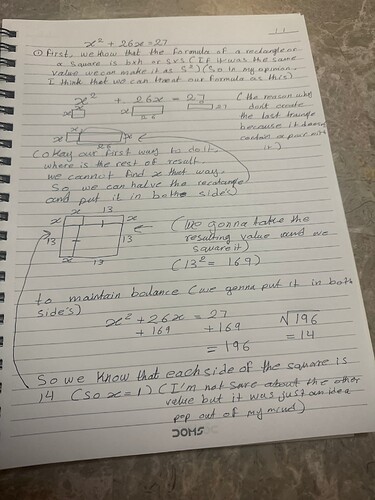 11
x² + 26x = 27
① First, we know that the formula of a rectangle or
a square is bxh or sxs (If it was the same
value we can make it as S²) (So in my opinion
I think that we can treat our formula as this)
x² + 26x = 27 (the reason why
x x 27 I don't create
26 the last triangle
x x because it
26 contain a pair with
it.)
(Okey our first way to do it.
where is the rest of result.
we cannot find x that way.
So we can halve the rectangle
and put it in both side's)
x 13
x x (we gonna take the
13 13 resulting value and we
square it)
x 13 (13² = 169)
to maintain balance (we gonna put it in both
side's)
x² + 26x = 27
+169 +169 √196
= 196 = 14
So we know that each side of the square is
14 (so x = 1) (I'm not sure about the other
value but it was just an idea
pop out of my mind)
DOMS